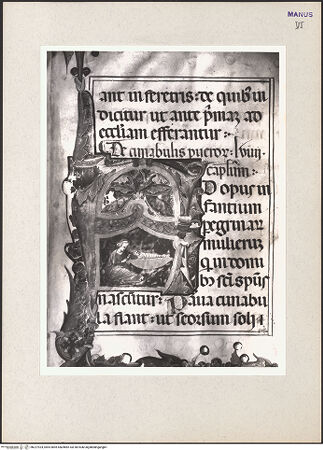 MANUS
VI
ant in feretris: de quib in
dicitur ut ante pmaz ad
eccliam efferantur :
De cunabulis pueror. lviiii.
captlm :
D opus in
fantium
peregrinar
mulieruz
q in domi
b sci spus
nascitur: Parva cunabu
la fiant: ut seorsum soli i